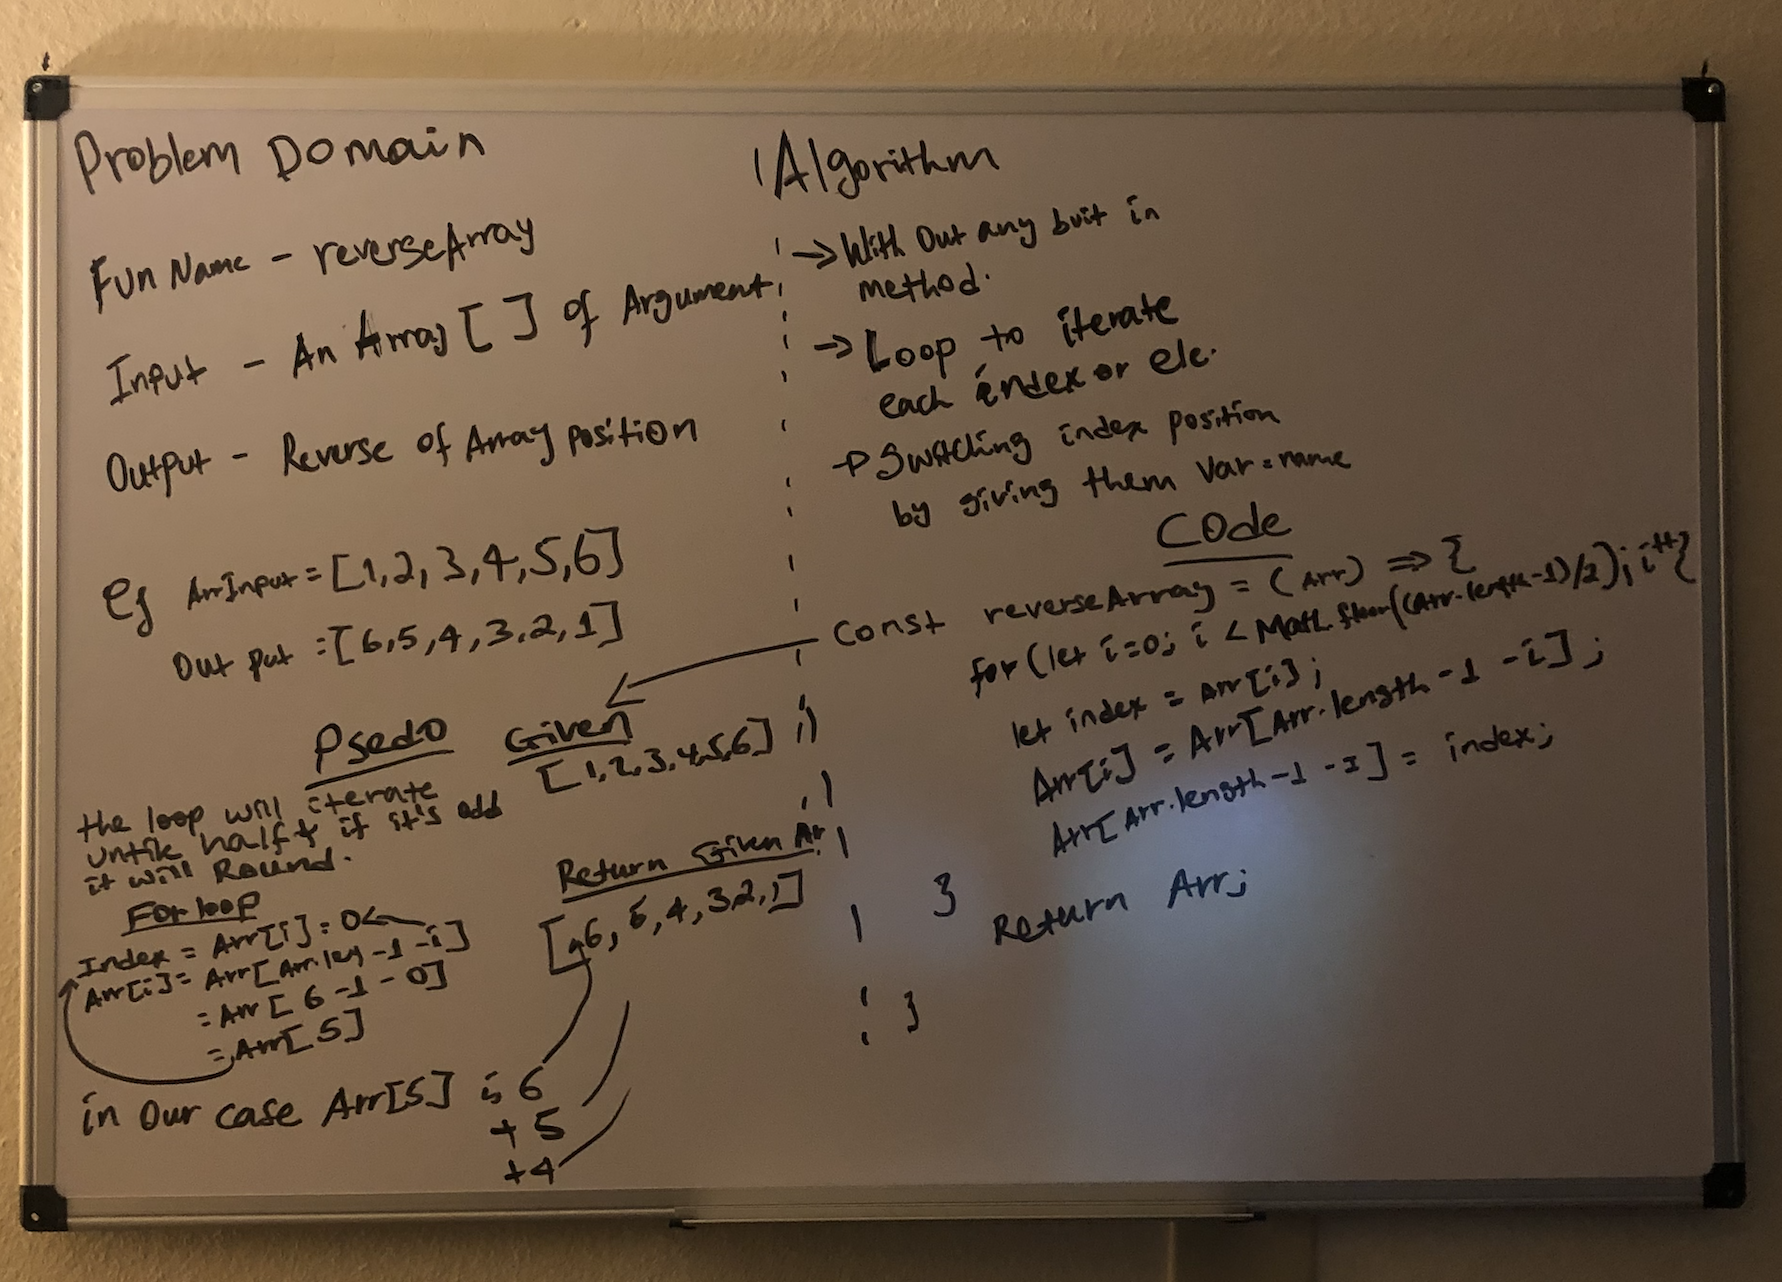 Problem Domain
Fun Name - reverseArray
Input - An Array [ ] of Argument
Output - Reverse of Array position
eg ArrInput = [1,2,3,4,5,6]
Out put = [6,5,4,3,2,1]
Psedo
the loop will iterate
untile half & if it's odd
it will Round.
For loop
Index = Arr[i] = 0
Arr[i] = Arr[Arr.leg -1 -i]
= Arr[6 -1 - 0]
= Arr[5]
in our case Arr[5] is 6
+ 5
+4
Given
[1,2,3,4,5,6]
Return Given Ar
[6, 5, 4, 3 2, 1]
Algorithm
→ With Out any buit in
method.
→ Loop to iterate
each index or ele.
→ Switching index position
by giving them Var = name
Code
const reverseArray = (Arr) => {
for (let i=0; i < Math.floor((Arr.length-1)/2); i++{
let index = Arr[i];
Arr[i] = Arr[Arr.length -1 -i];
Arr[Arr.length-1 -i] = index;
}
Return Arr;
}